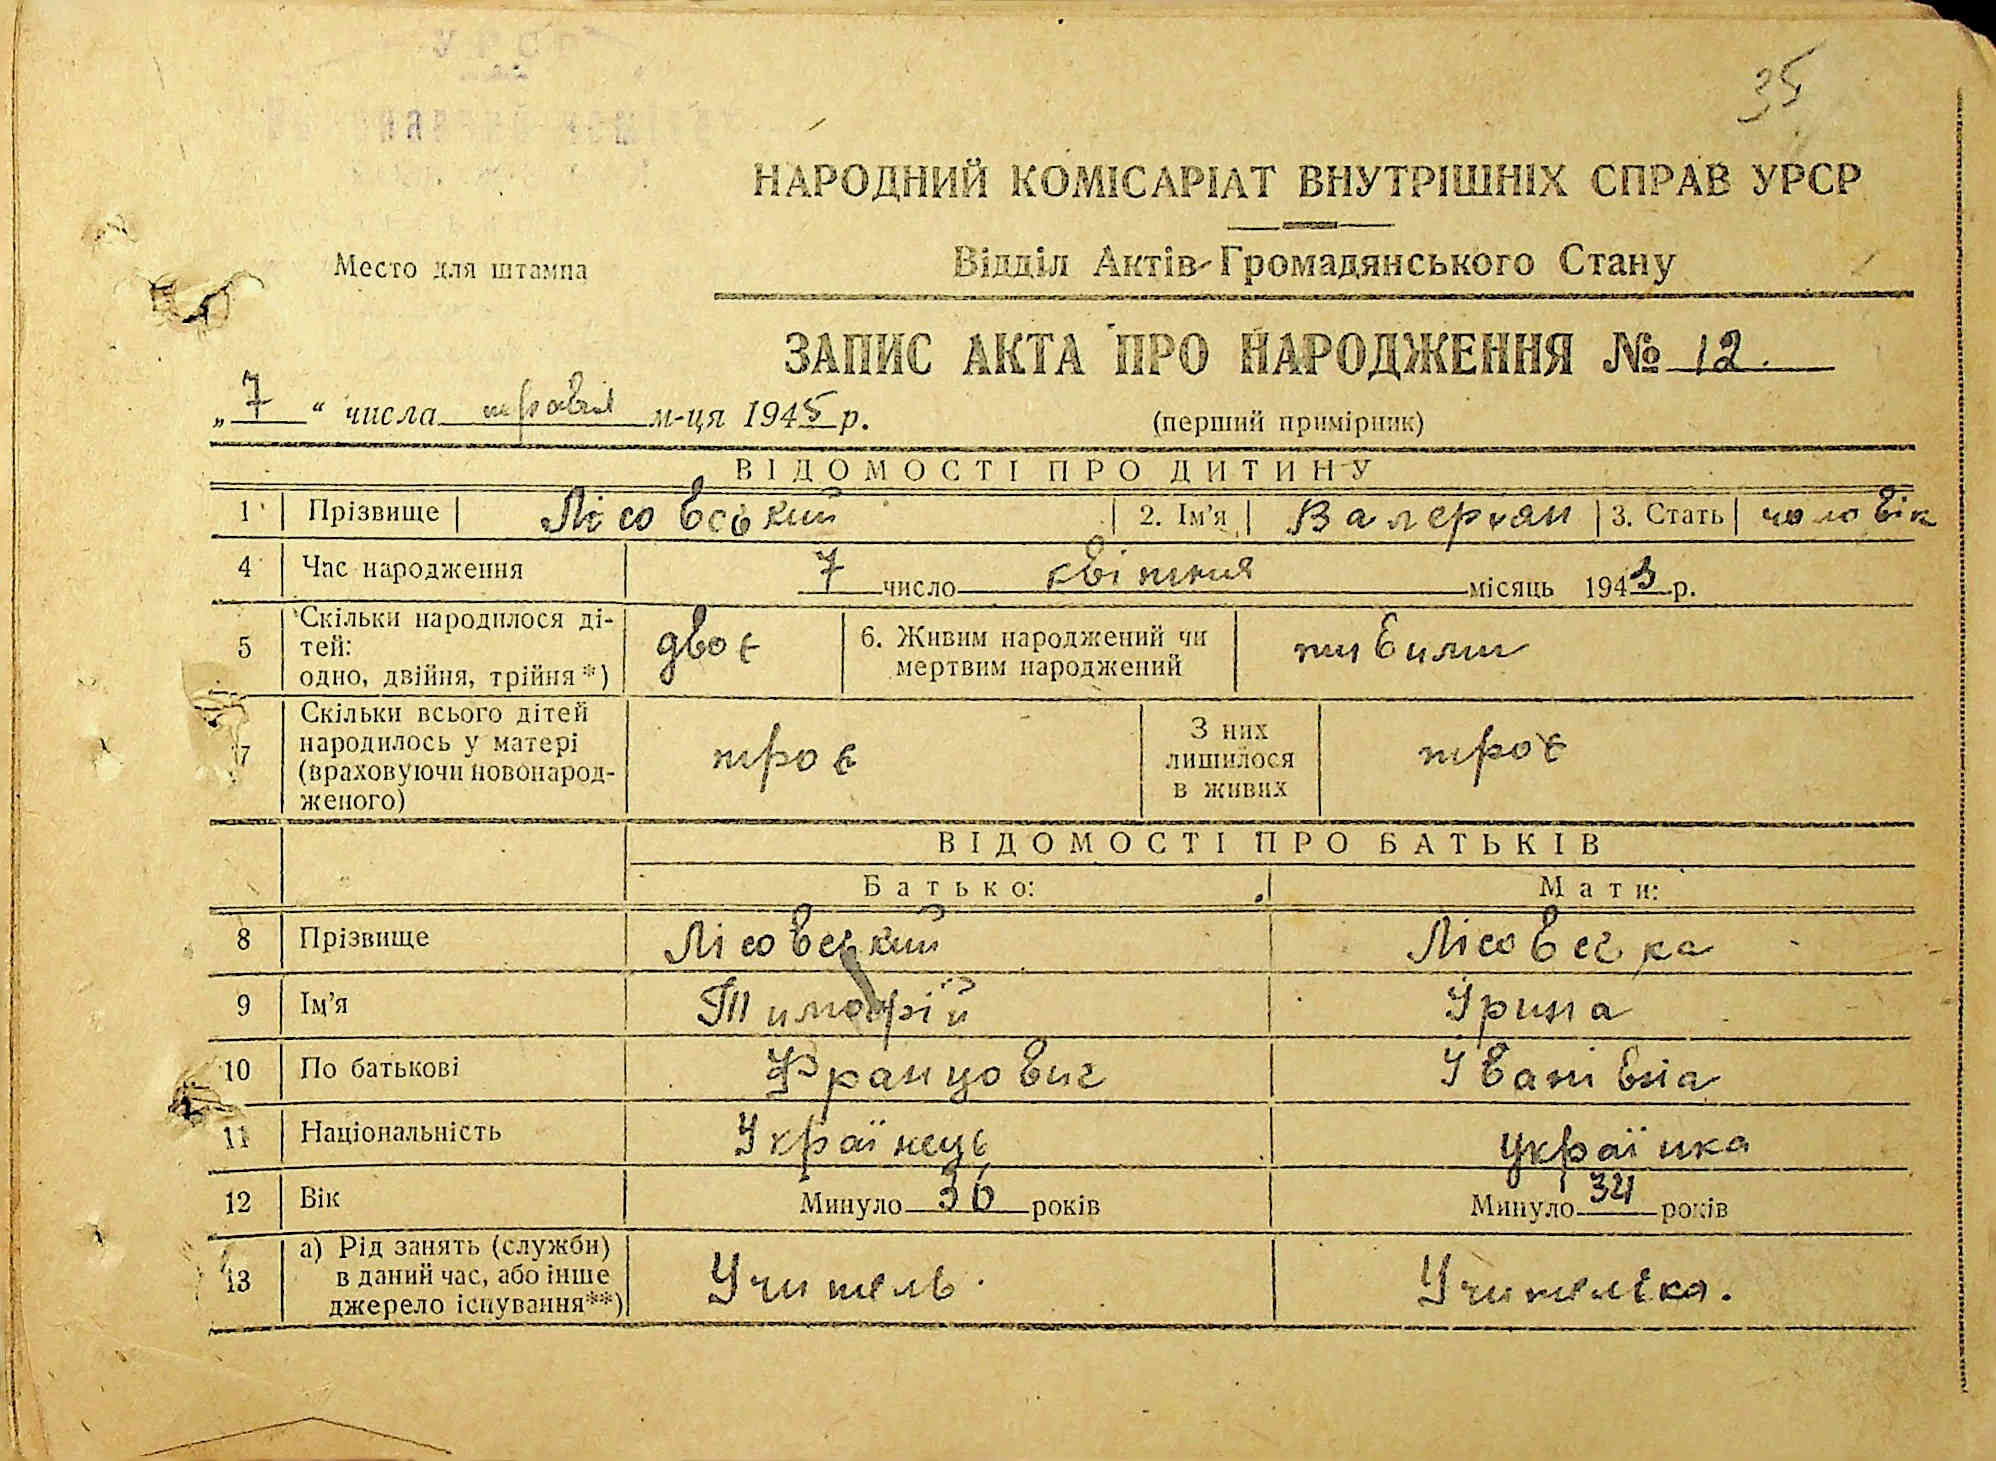 35
НАРОДНИЙ КОМІСАРІАТ ВНУТРІШНІХ СПРАВ УРСР
Место для штампа
Відділ Актів Громадянського Стану
ЗАПИС АКТА ПРО НАРОДЖЕННЯ № 12.
„7“ числа травня м-ця 1945 р.
(перший примірник)
ВІДОМОСТІ ПРО ДИТИНУ
1 Прізвище Лісовський 2. Ім'я Валерьян 3. Стать чоловік
4 Час народження 7 число квітня місяць 1943 р.
5 Скільки народилося ді-
тей:
одно, двійня, трійня*) двоє
6. Живим народжений чи
мертвим народжений живими
7 Скільки всього дітей
народилось у матері
(враховуючи новонарод-
женого) троє
З них
лишилося
в живих троє
ВІДОМОСТІ ПРО БАТЬКІВ
Батько: Мати:
8 Прізвище Лісовський Лісовська
9 Ім'я Тимофій Ірина
10 По батькові Францович Іванівна
11 Національність Українець українка
12 Вік Минуло 36 років Минуло 34 років
13 а) Рід занять (служби)
в даний час, або інше
джерело існування**) Учитель. Учителька.